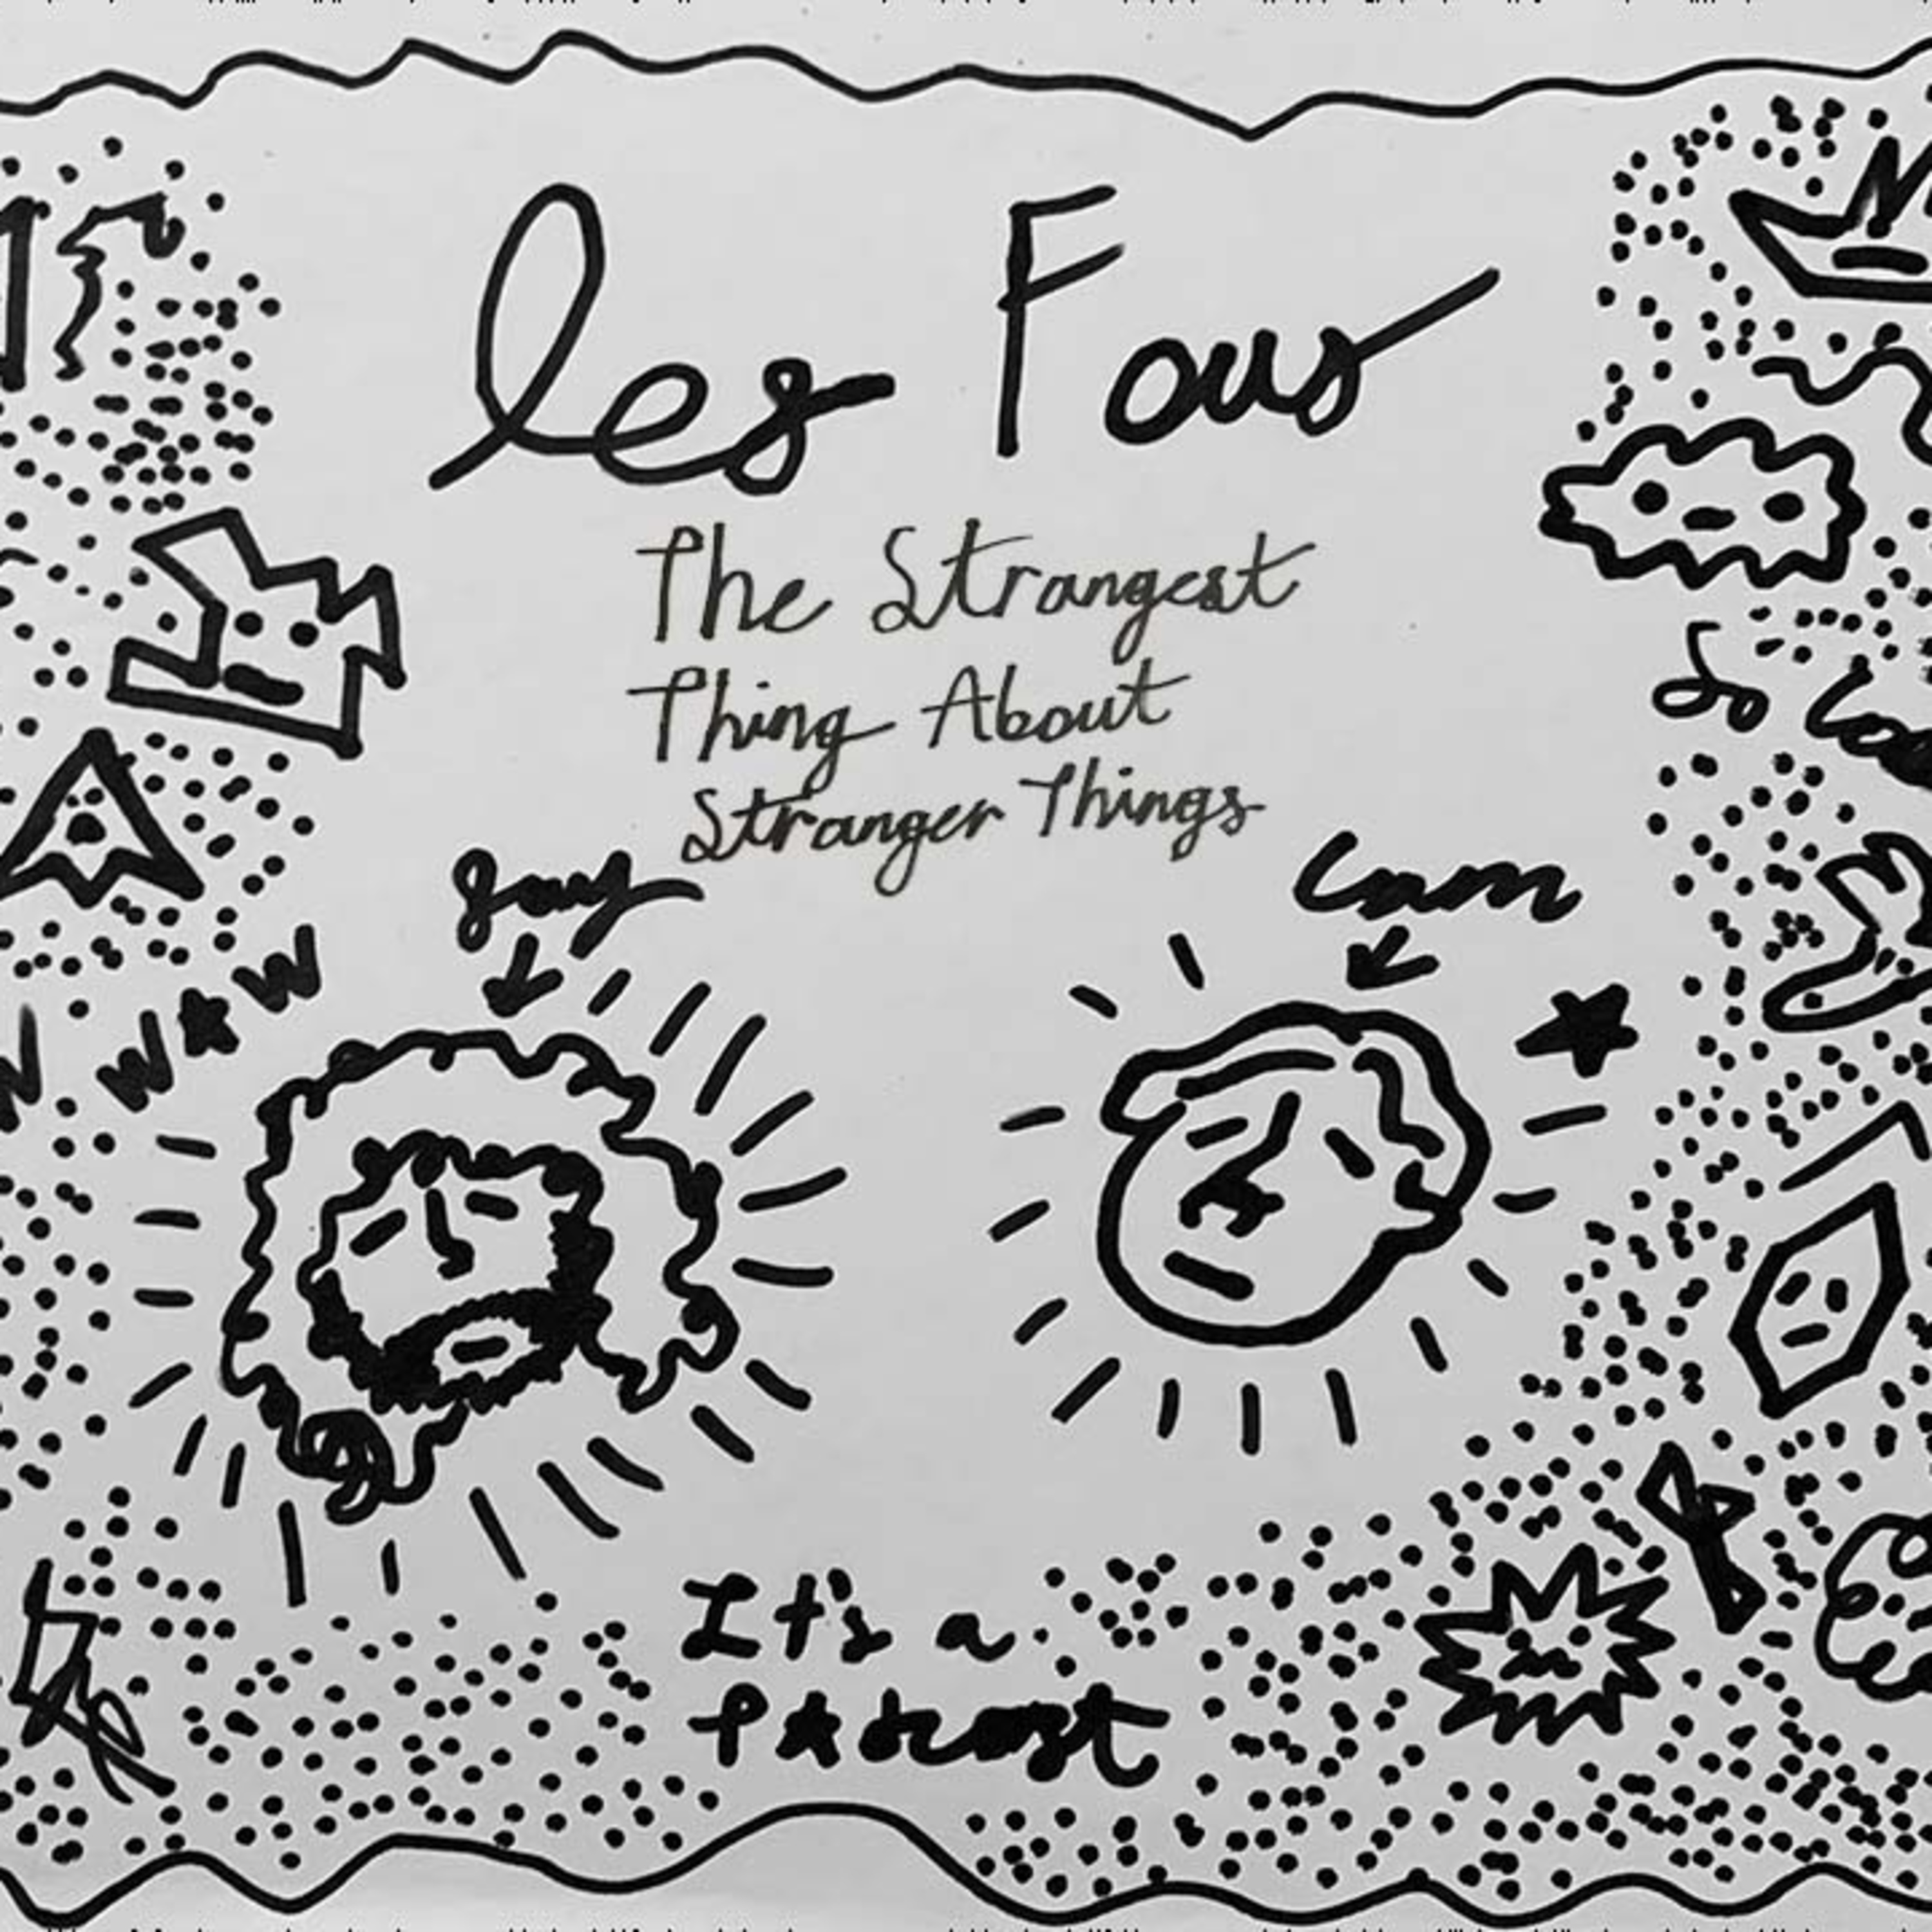 les Fous
The Strangest
Thing About
Stranger Things
Cam
It's a